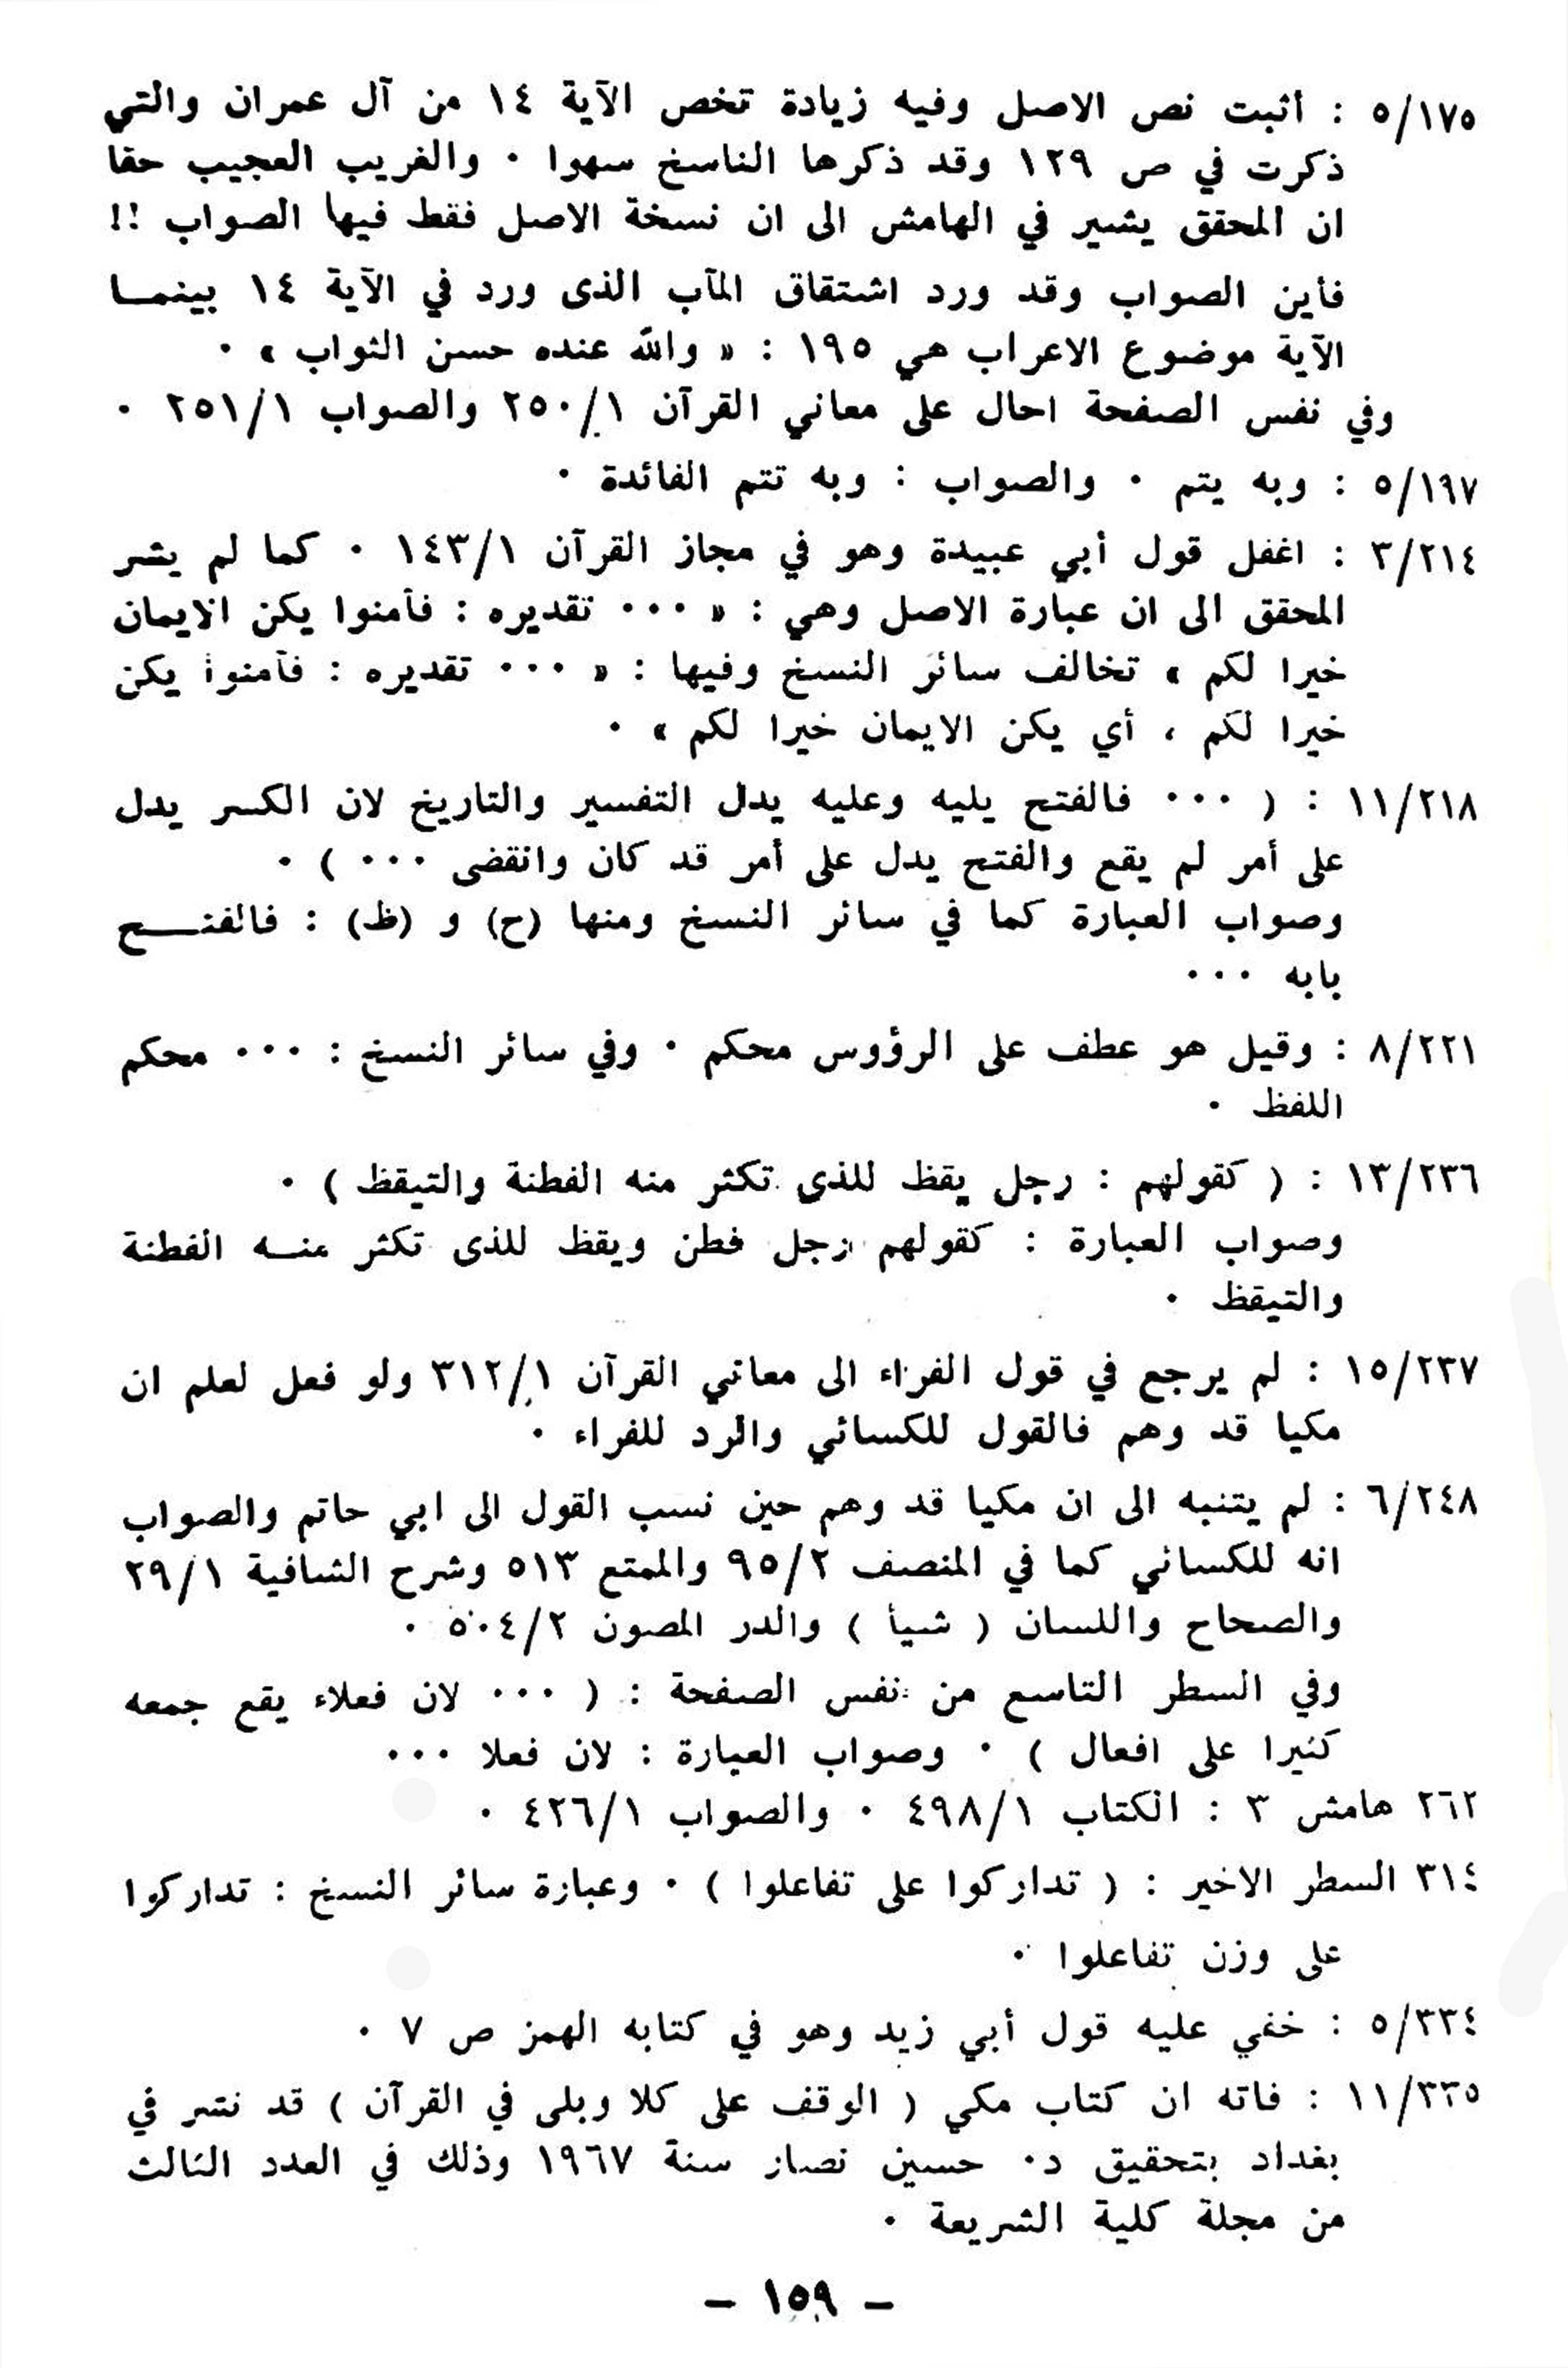 ٥/١٧٥ : أثبت نص الاصل وفيه زيادة تخص الآية ١٤ من آل عمران والتي
ذكرت في ص ١٢٩ وقد ذكرها الناسخ سهوا ٠ والغريب العجيب حقا
ان المحقق يشير في الهامش الى ان نسخة الاصل فقط فيها الصواب !!
فأين الصواب وقد ورد اشتقاق المآب الذى ورد في الآية ١٤ بينمـا
الآية موضوع الاعراب هي ١٩٥ : « والله عنده حسن الثواب » ٠
وفي نفس الصفحة احال على معاني القرآن ٢٥٠/١ والصواب ٢٥١/١ ٠
٥/١٩٧ : وبه يتم ٠ والصواب : وبه تتم الفائدة ٠
٣/٢١٤ : اغفل قول أبي عبيدة وهو في مجاز القرآن ١٤٣/١ ٠ كما لم يشر
المحقق الى ان عبارة الاصل وهي : « ٠٠٠ تقديره : فآمنوا يكن الايمان
خيرا لكم » تخالف سائر النسخ وفيها : « ٠٠٠ تقديره : فآمنوا يكن
خيرا لكم ، أي يكن الايمان خيرا لكم » ٠
١١/٢١٨ : ( ٠٠٠ فالفتح يليه وعليه يدل التفسير والتاريخ لان الكسر يدل
على أمر لم يقع والفتح يدل على أمر قد كان وانقضى ٠٠٠ ) ٠
وصواب العبارة كما في سائر النسخ ومنها (ح) و (ظ) : فالفتـــح
بابه ٠٠٠
٨/٢٢١ : وقيل هو عطف على الرؤوس محكم ٠ وفي سائر النسخ : ٠٠٠ محكم
اللفظ ٠
١٣/٢٣٦ : ( كقولهم : رجل يقظ للذى تكثر منه الفطنة والتيقظ ) ٠
وصواب العبارة : كقولهم رجل فطن ويقظ للذى تكثر منـه الفطنة
والتيقظ ٠
١٥/٢٣٧ : لم يرجع في قول الفراء الى معاني القرآن ٣١٢/١ ولو فعل لعلم ان
مكيا قد وهم فالقول للكسائي والرد للفراء ٠
٦/٢٤٨ : لم يتنبه الى ان مكيا قد وهم حين نسب القول الى ابي حاتم والصواب
انه للكسائي كما في المنصف ٩٥/٢ والممتع ٥١٣ وشرح الشافية ٢٩/١
والصحاح واللسان ( شيأ ) والدر المصون ٥٠٤/٢ ٠
وفي السطر التاسع من نفس الصفحة : ( ٠٠٠ لان فعلاء يقع جمعه
كثيرا على افعال ) ٠ وصواب العبارة : لان فعلا ٠٠٠
٢٦٢ هامش ٣ : الكتاب ٤٩٨/١ ٠ والصواب ٤٢٦/١ ٠
٣١٤ السطر الاخير : ( تداركوا على تفاعلوا ) ٠ وعبارة سائر النسخ : تداركوا
على وزن تفاعلوا ٠
٥/٣٣٤ : خفي عليه قول أبي زيد وهو في كتابه الهمز ص ٧ ٠
١١/٣٣٥ : فاته ان كتاب مكي ( الوقف على كلا وبلى في القرآن ) قد نشر في
بغداد بتحقيق د٠ حسين نصار سنة ١٩٦٧ وذلك في العدد الثالث
من مجلة كلية الشريعة ٠
- ١٥٩ -